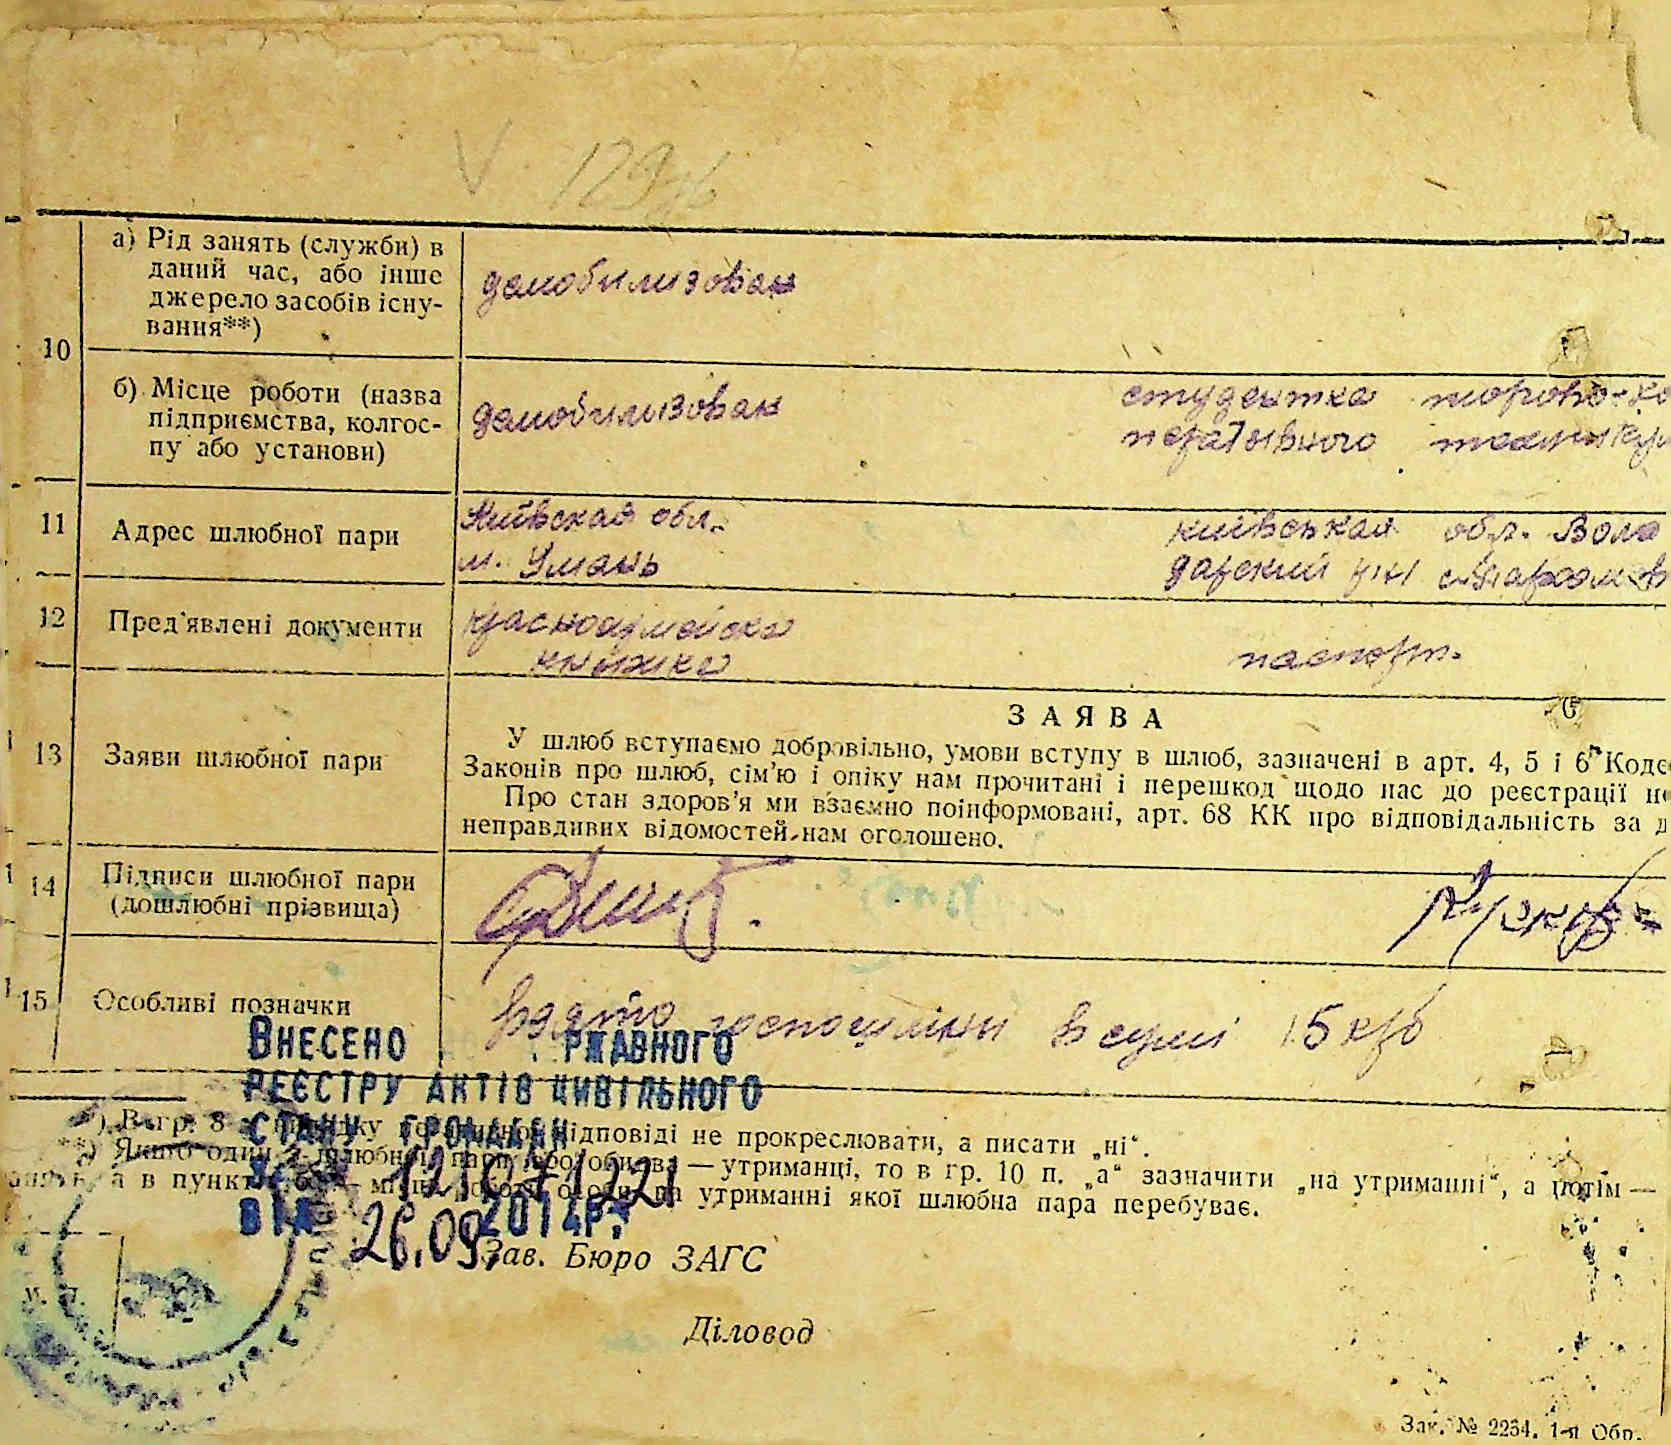 V 129
а) Рід занять (служби) в
даний час, або інше
джерело засобів існу-
вання**)
демобилизован
10
б) Місце роботи (назва
підприємства, колгос-
пу або установи)
демобилизован
студентка торгово-ко
перативного техникум
11
Адрес шлюбної пари
Київская обл.
м. Умань
київськая обл. Воло
дарский р-н
12
Пред'явлені документи
красноармейска
книжка
паспорт.
13
Заяви шлюбної пари
ЗАЯВА
У шлюб вступаємо добровільно, умови вступу в шлюб, зазначені в арт. 4, 5 і 6 Коде
Законів про шлюб, сім'ю і опіку нам прочитані і перешкод щодо нас до реєстрації н
Про стан здоров'я ми взаємно поінформовані, арт. 68 КК про відповідальність за д
неправдивих відомостей нам оголошено.
14
Підписи шлюбної пари
(дошлюбні прізвища)
15
Особливі позначки
взято госпошліни в сумі 15 крб
ВНЕСЕНО РЖАВНОГО
РЕЄСТРУ АКТІВ ЦИВІЛЬНОГО
СТАНУ ГРОМАДЯН
ВІД 26.09. 2014р.
*) В гр. 8 відповіді не прокреслювати, а писати „ні“.
**) Якщо один з шлюбної пари або обидва — утриманці, то в гр. 10 п. „а“ зазначити „на утриманні“, а потім —
а в пункті утриманні якої шлюбна пара перебуває.
М. П.
Зав. Бюро ЗАГС
Діловод
Зак. № 2234. 1-я Обр.